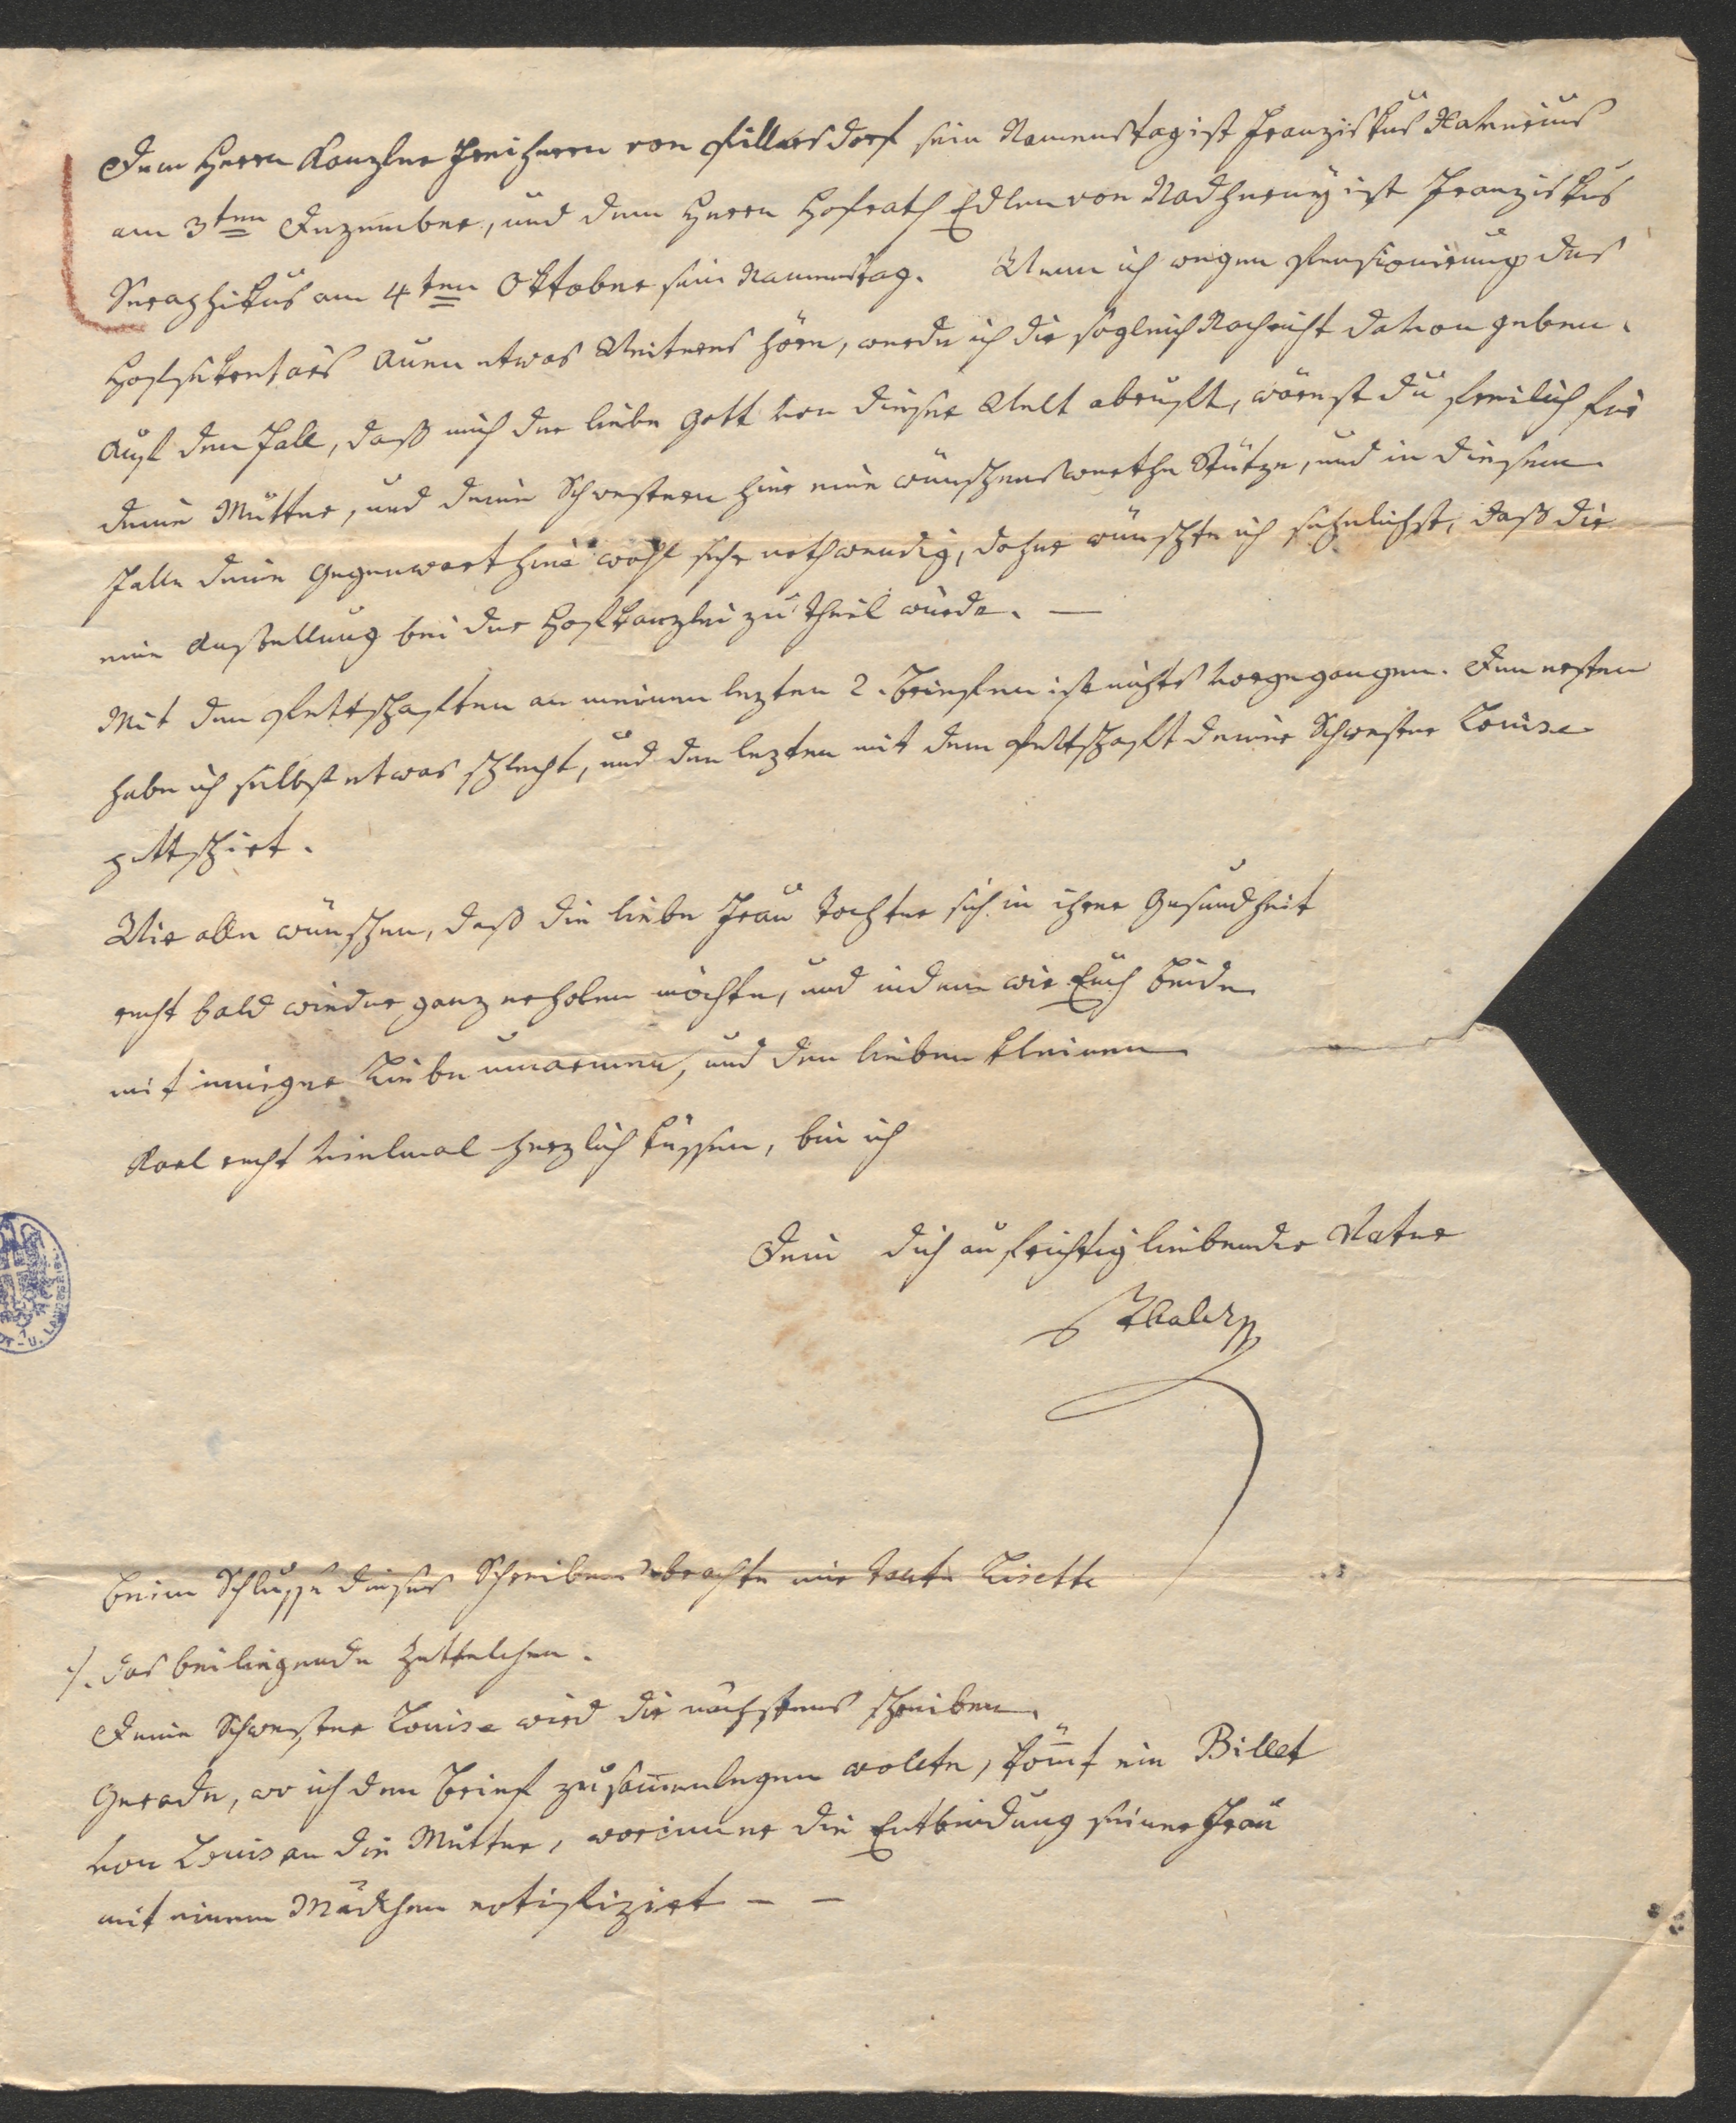 Dem Herrn Kanzler Freiherrn von Pillersdorf sein Namenstag ist Franziskus Xaverius
am 3ten Dezember, und dem Herrn Hofrath Edlen von Nadherny ist Franziskus
Seraphikus am 4ten Oktober sein Namenstag. Wenn ich wegen Pensionirung des
Hofsekretärs Auen etwas Weiteres höre, werde ich dir sogleich Nachricht davon geben.
Auf den Fall, daß mich der liebe Gott von dieser Welt abruft, wärest du freilich für
deine Mutter, und deine Schwestern hier eine wünschenswerthe Stütze, und in diesem
Falle deine Gegenwart hier wohl sehr nothwendig, daher wünschte ich sehnlichst, daß dir
eine Anstellung bei der Hofkanzlei zu Theil würde. —
Mit den Pettschaften an meinen lezten 2. Briefen ist nichts vorgegangen. Den ersten
habe ich selbst etwas schlecht, und den lezten mit dem Pettschaft deiner Schwester Louise
pettschirt.
Wir alle wünschen, daß die liebe Frau Tochter sich in ihrer Gesundheit
recht bald wieder ganz erholen möchte, und indem wir Euch beide
mit inniger Liebe umarmen, und den lieben kleinen
Karl recht vielmal herzlich küssen, bin ich
Dein dich aufrichtig liebender Vater
Beim Schlusse dieses Schreibens brachte mir Tante Lisette
./. das beiliegende Zettelchen.
Deine Schwester Louise wird dir nächstens schreiben.
Gerade, wo ich den Brief zusam̅enlegen wollte, köm̅t ein Billet
von Louis an die Mutter, worinn er die Entbindung seiner Frau
mit einem Mädchen notifizirt — —